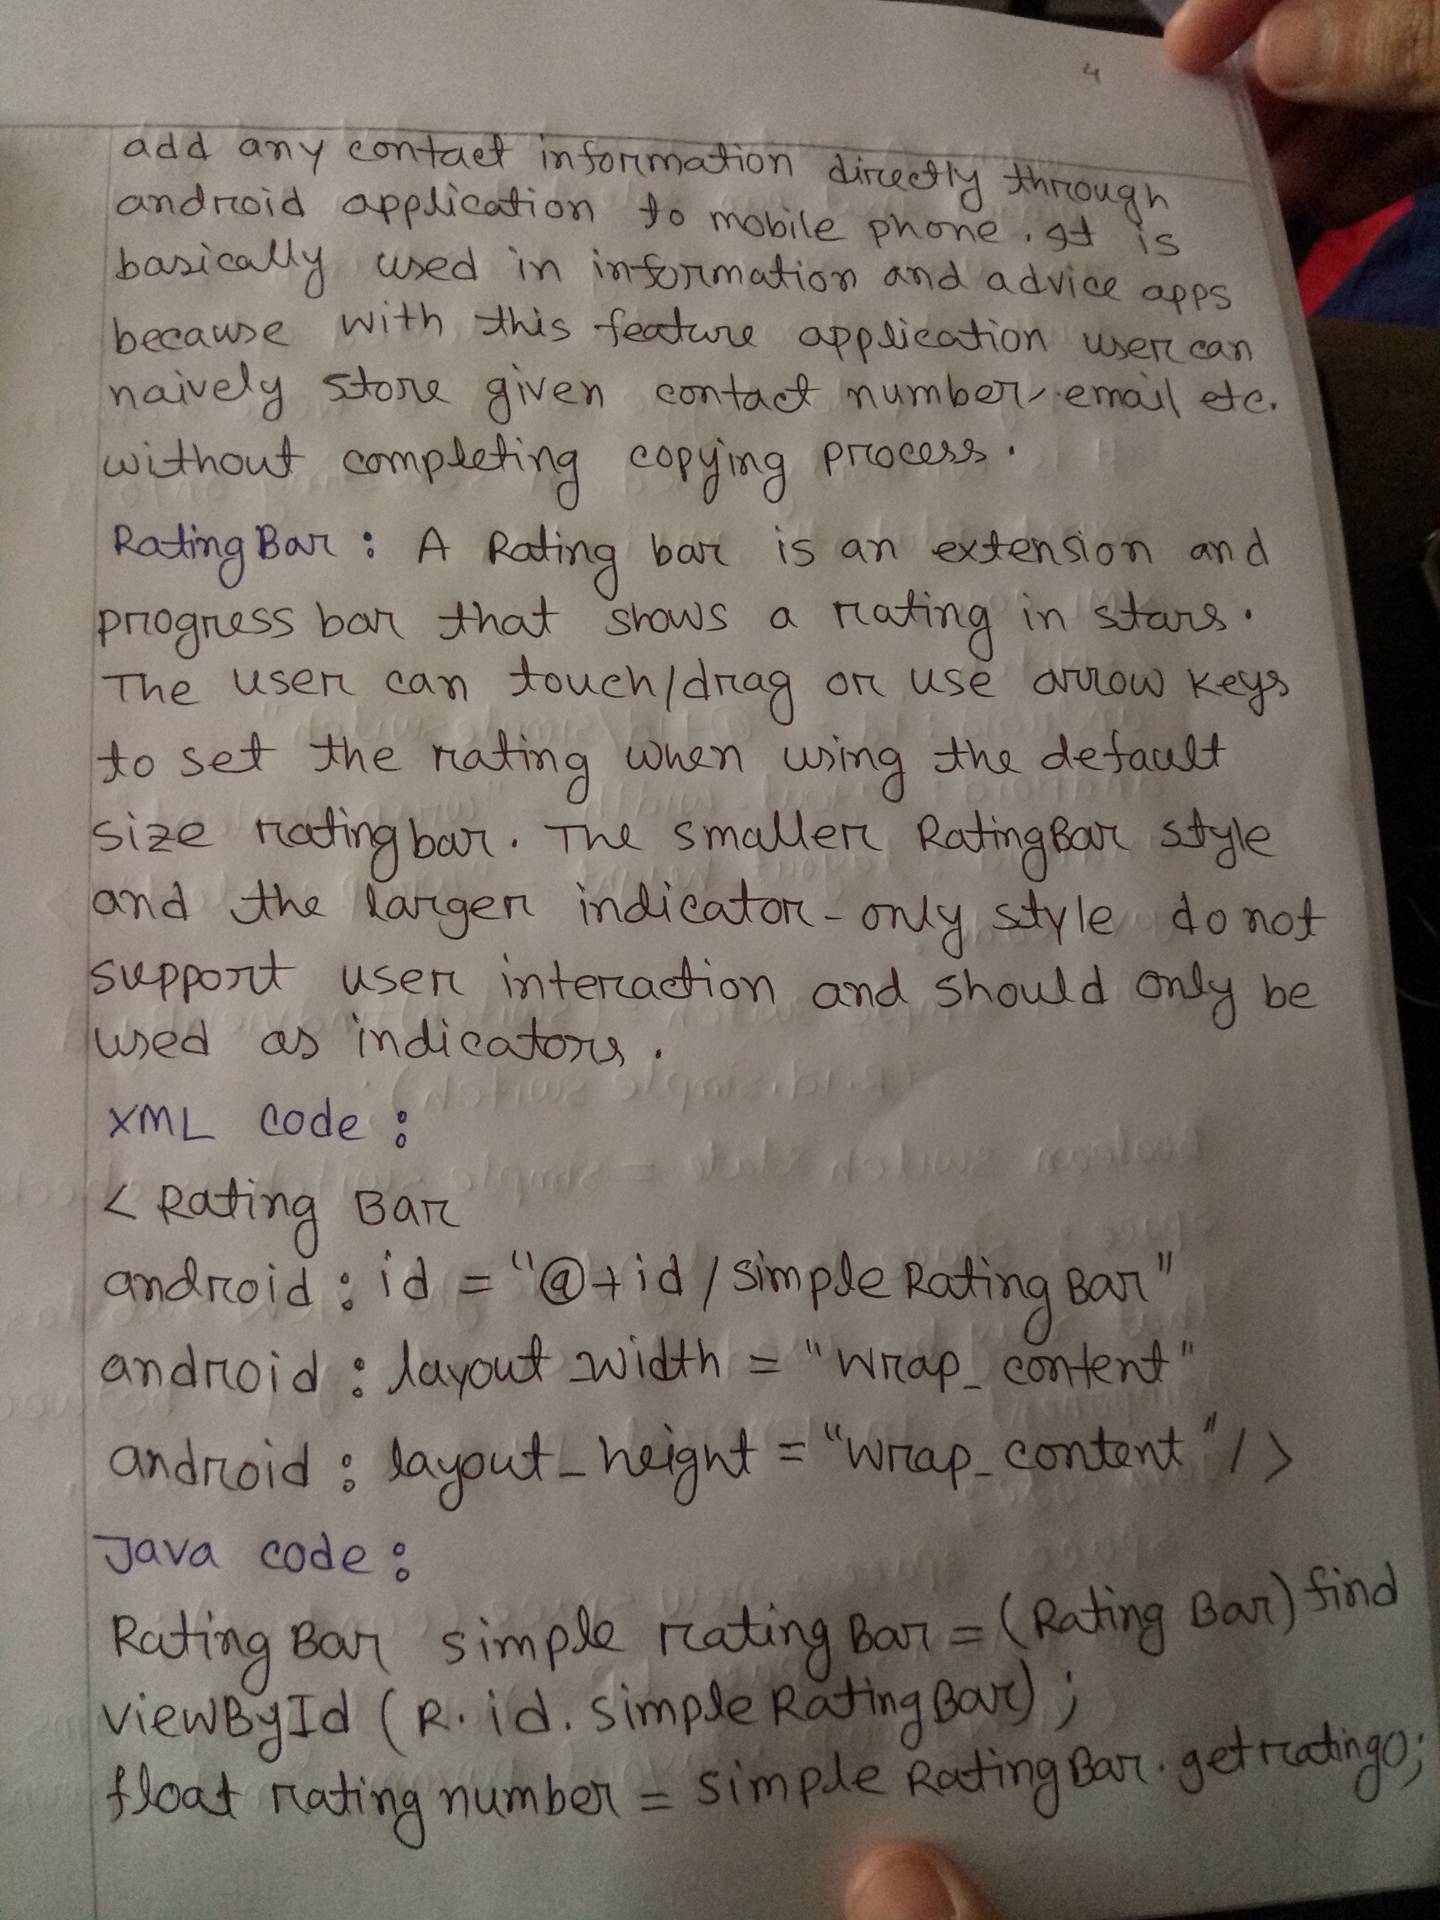 4
add any contact information directly through
android application to mobile phone. It is
basically used in information and advice apps
because with this feature application user can
naively store given contact number, email etc.
without completing copying process.
Rating Bar : A Rating bar is an extension and
progress bar that shows a rating in stars.
The user can touch/drag or use arrow keys
to set the rating when using the default
size rating bar. The smaller RatingBar style
and the larger indicator-only style do not
support user interaction and should only be
used as indicators.
XML code :
< Rating Bar
android : id = "@+id / simple Rating Bar"
android : layout_width = "wrap_content"
android : layout_height = "wrap_content" / >
Java code :
Rating Bar simple rating Bar = (Rating Bar) find
viewById (R. id. simple RatingBar) ;
float rating number = simple RatingBar. getrating();